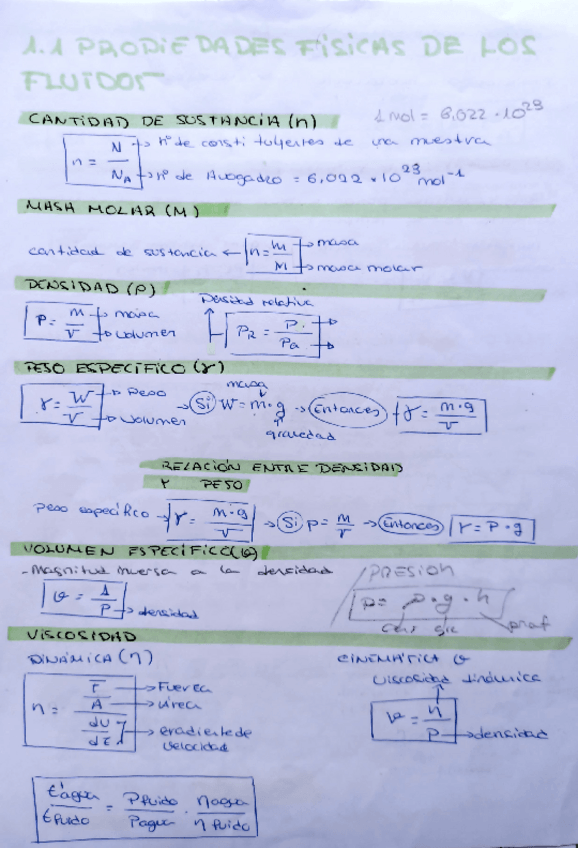 1.1 PROPIEDADES FÍSICAS DE LOS
FLUIDOS
CANTIDAD DE SUSTANCIA (n)
1 mol = 6,022 · 10²³
n = N / NA
N → nº de constituyentes de una muestra
NA → nº de Avogadro = 6,022 · 10²³ mol⁻¹
MASA MOLAR (M)
cantidad de sustancia ← n = m / M
→ masa
→ masa molar
DENSIDAD (ρ)
ρ = m / V
→ masa
→ volumen
Densidad relativa
ρR = ρ / ρa
PESO ESPECÍFICO (γ)
γ = W / V
→ Peso
→ Volumen
masa
→ Si W = m · g → Entonces → γ = m · g / V
gravedad
RELACIÓN ENTRE DENSIDAD
Y PESO
peso específico → γ = m · g / V → Si ρ = m / V → Entonces γ = ρ · g
VOLUMEN ESPECÍFICO (v)
- Magnitud inversa a la densidad
v = 1 / ρ → densidad
PRESIÓN
P = ρ · g · h
prof
VISCOSIDAD
DINÁMICA (η)
η = F / A / du / dt
→ Fuerza
→ área
→ gradiente de
velocidad
CINEMÁTICA v
viscosidad dinámica
v = η / ρ → densidad
t agua / t fluido = ρ fluido / ρ agua · η agua / η fluido